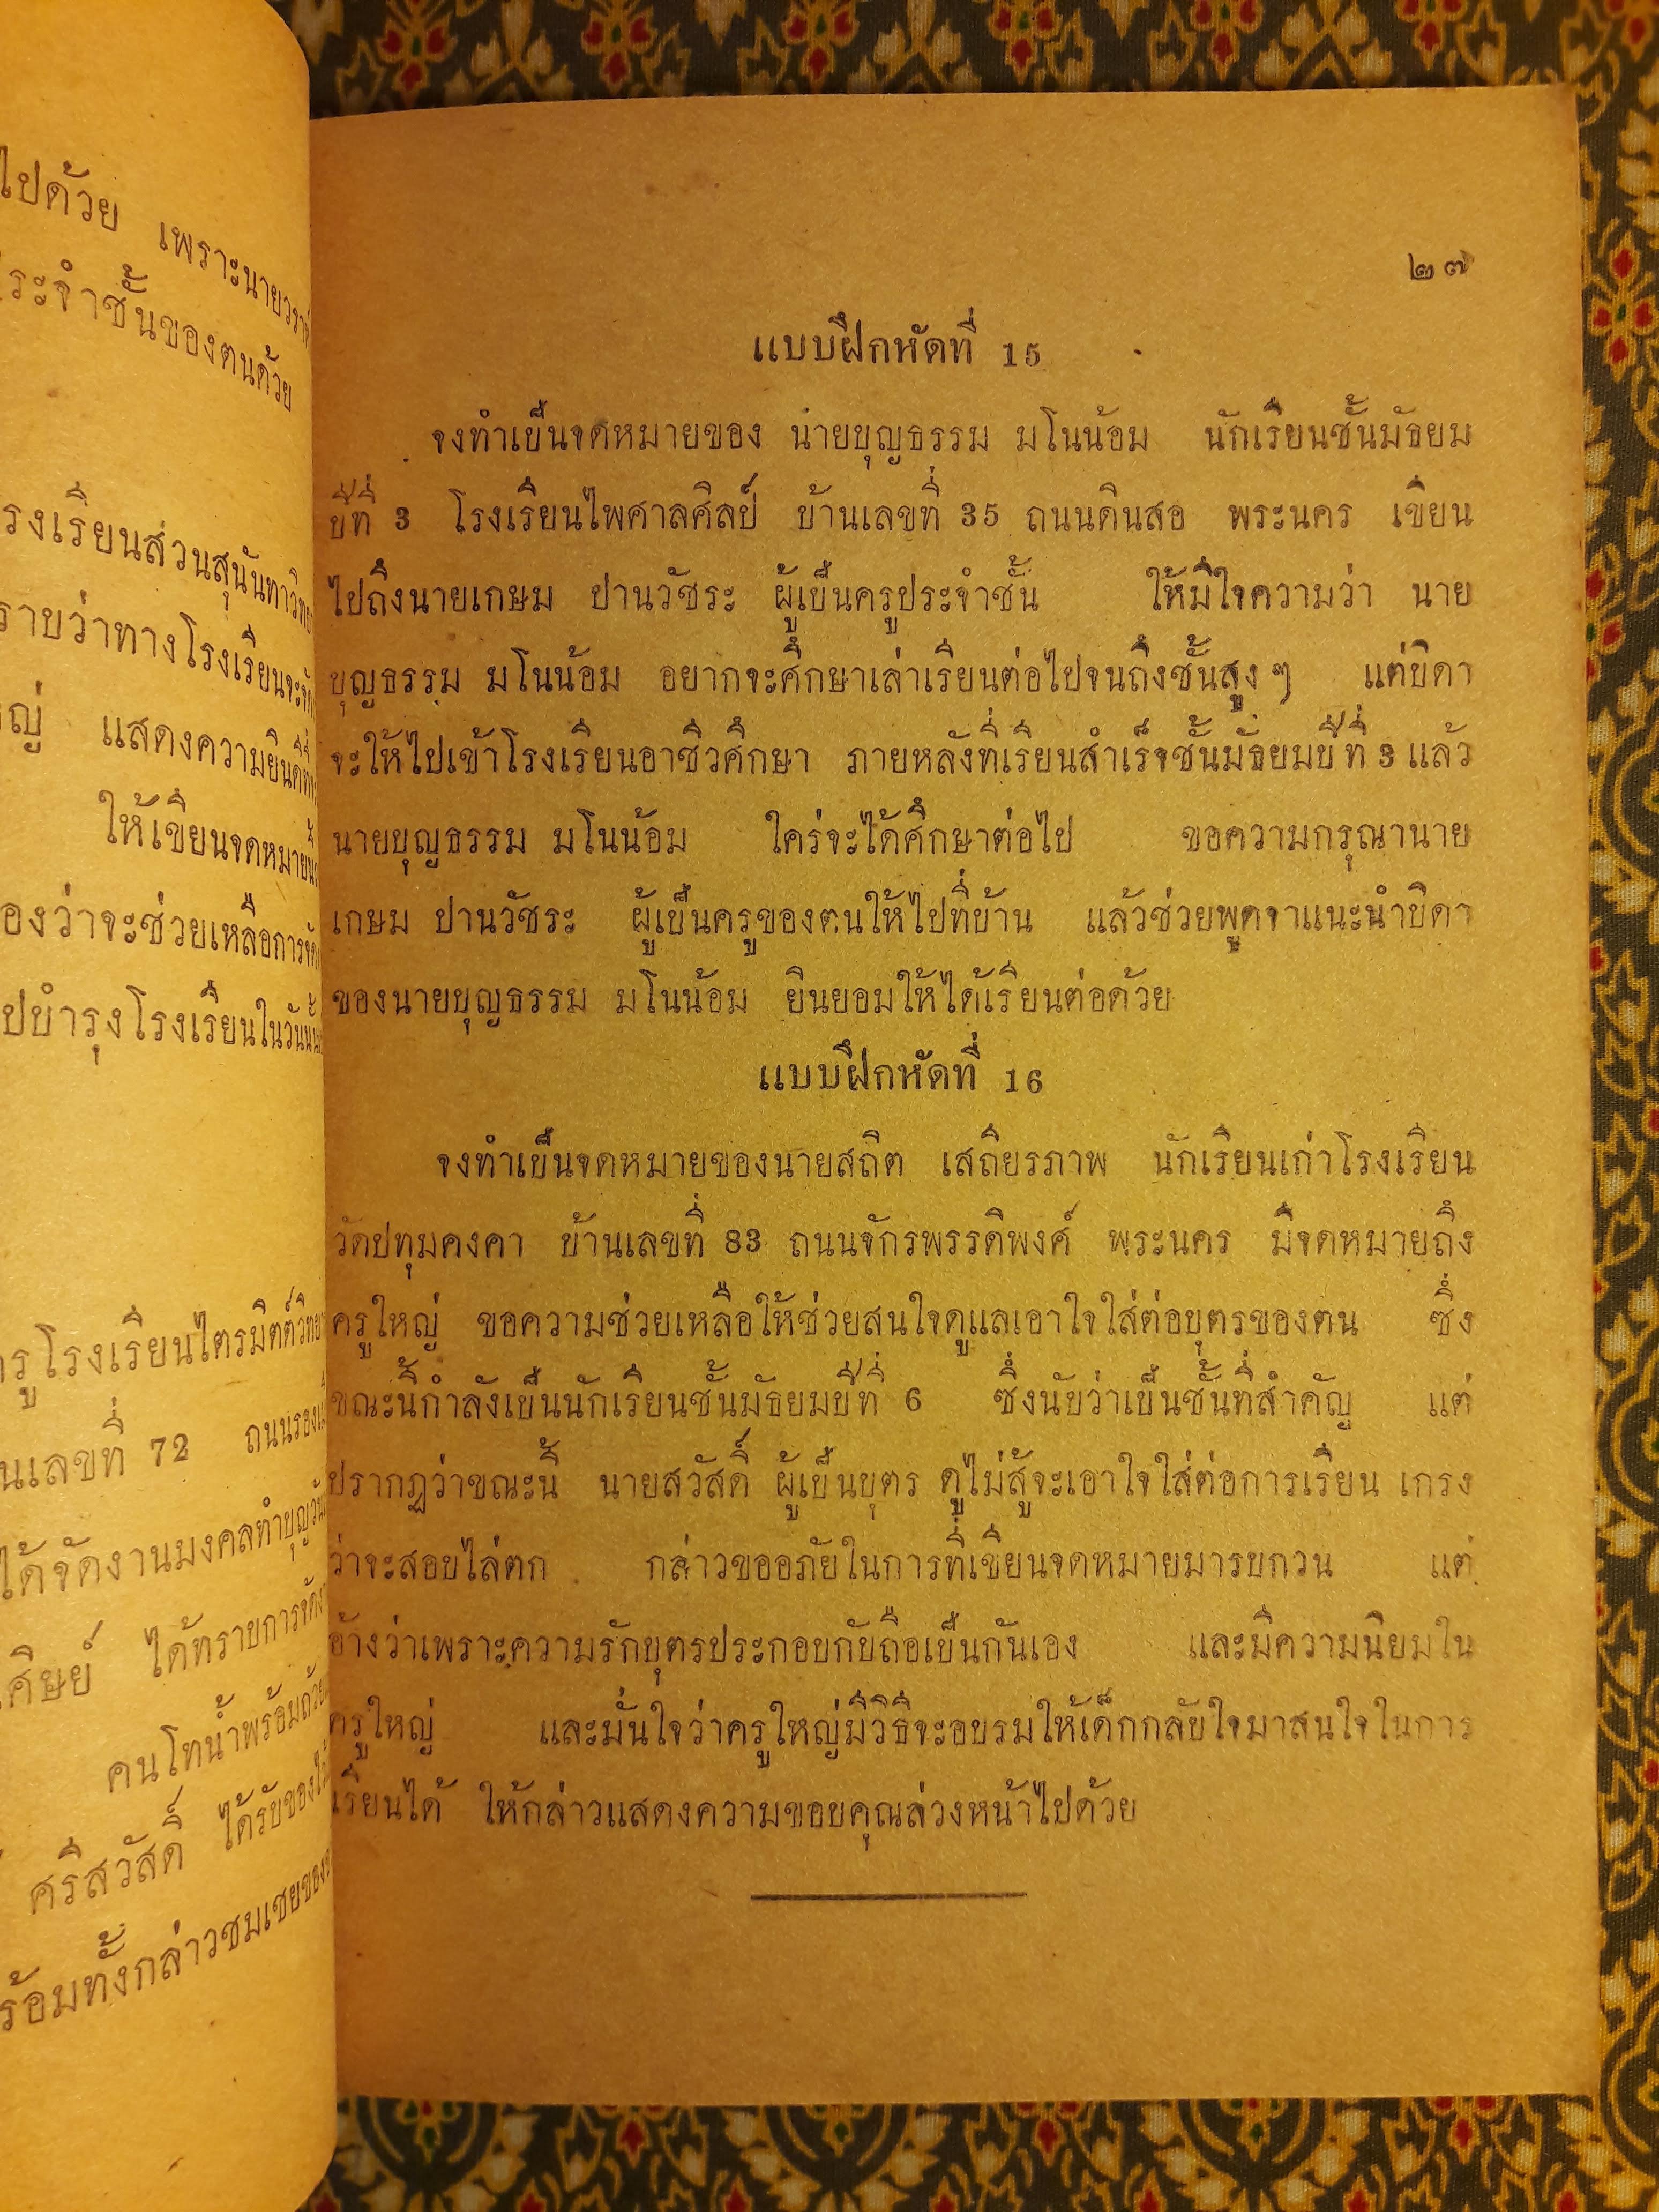 ไปด้วย เพราะนาย
ระจำชั้นของตนด้วย
รงเรียนส่วนสุนันทาวิทยา
รายว่าทางโรงเรียนจะ
ญ่ แสดงความยินดีที่
ให้เขียนจดหมาย
องว่าจะช่วยเหลือการ
ปบำรุงโรงเรียนในวัน
ครูโรงเรียนไตรมิตต์วิทยา
นเลขที่ 72 ถนนรอง
ได้จัดงานมงคลทำบุญวัน
ศิษย์ ได้ทราบการ
คนโทน้ำพร้อมถ้วย
ศรีสวัสดิ์ ได้รับของ
ร้อมทั้งกล่าวชมเชยของ
๒๗
แบบฝึกหัดที่ 15
จงทำเป็นจดหมายของ นายบุญธรรม มโนน้อม นักเรียนชั้นมัธยม
ปีที่ 3 โรงเรียนไพศาลศิลป์ บ้านเลขที่ 35 ถนนดินสอ พระนคร เขียน
ไปถึงนายเกษม ปานวัชระ ผู้เป็นครูประจำชั้น ให้มีใจความว่า นาย
บุญธรรม มโนน้อม อยากจะศึกษาเล่าเรียนต่อไปจนถึงชั้นสูง ๆ แต่บิดา
จะให้ไปเข้าโรงเรียนอาชีวศึกษา ภายหลังที่เรียนสำเร็จชั้นมัธยมปีที่ 3 แล้ว
นายบุญธรรม มโนน้อม ใคร่จะได้ศึกษาต่อไป ขอความกรุณานาย
เกษม ปานวัชระ ผู้เป็นครูของตนให้ไปที่บ้าน แล้วช่วยพูดจาแนะนำบิดา
ของนายบุญธรรม มโนน้อม ยินยอมให้ได้เรียนต่อด้วย
แบบฝึกหัดที่ 16
จงทำเป็นจดหมายของนายสถิต เสถียรภาพ นักเรียนเก่าโรงเรียน
วัดปทุมคงคา บ้านเลขที่ 83 ถนนจักรพรรดิพงศ์ พระนคร มีจดหมายถึง
ครูใหญ่ ขอความช่วยเหลือให้ช่วยสนใจดูแลเอาใจใส่ต่อบุตรของตน ซึ่ง
ขณะนี้กำลังเป็นนักเรียนชั้นมัธยมปีที่ 6 ซึ่งนับว่าเป็นชั้นที่สำคัญ แต่
ปรากฏว่าขณะนี้ นายสวัสดิ์ ผู้เป็นบุตร ดูไม่สู้จะเอาใจใส่ต่อการเรียน เกรง
ว่าจะสอบไล่ตก กล่าวขออภัยในการที่เขียนจดหมายมารบกวน แต่
อ้างว่าเพราะความรักบุตรประกอบกับถือเป็นกันเอง และมีความนิยมใน
ครูใหญ่ และมั่นใจว่าครูใหญ่มีวิธีจะอบรมให้เด็กกลับใจมาสนใจในการ
เรียนได้ ให้กล่าวแสดงความขอบคุณล่วงหน้าไปด้วย